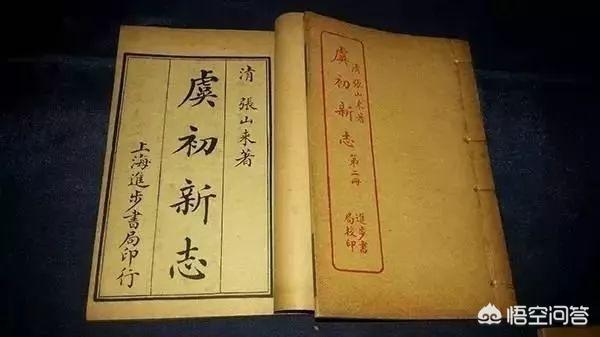 清 張山來著
虞初新志
上海進步書局印行
清 張山來著
虞初新志 第二冊
進步書
局校印
悟空问答